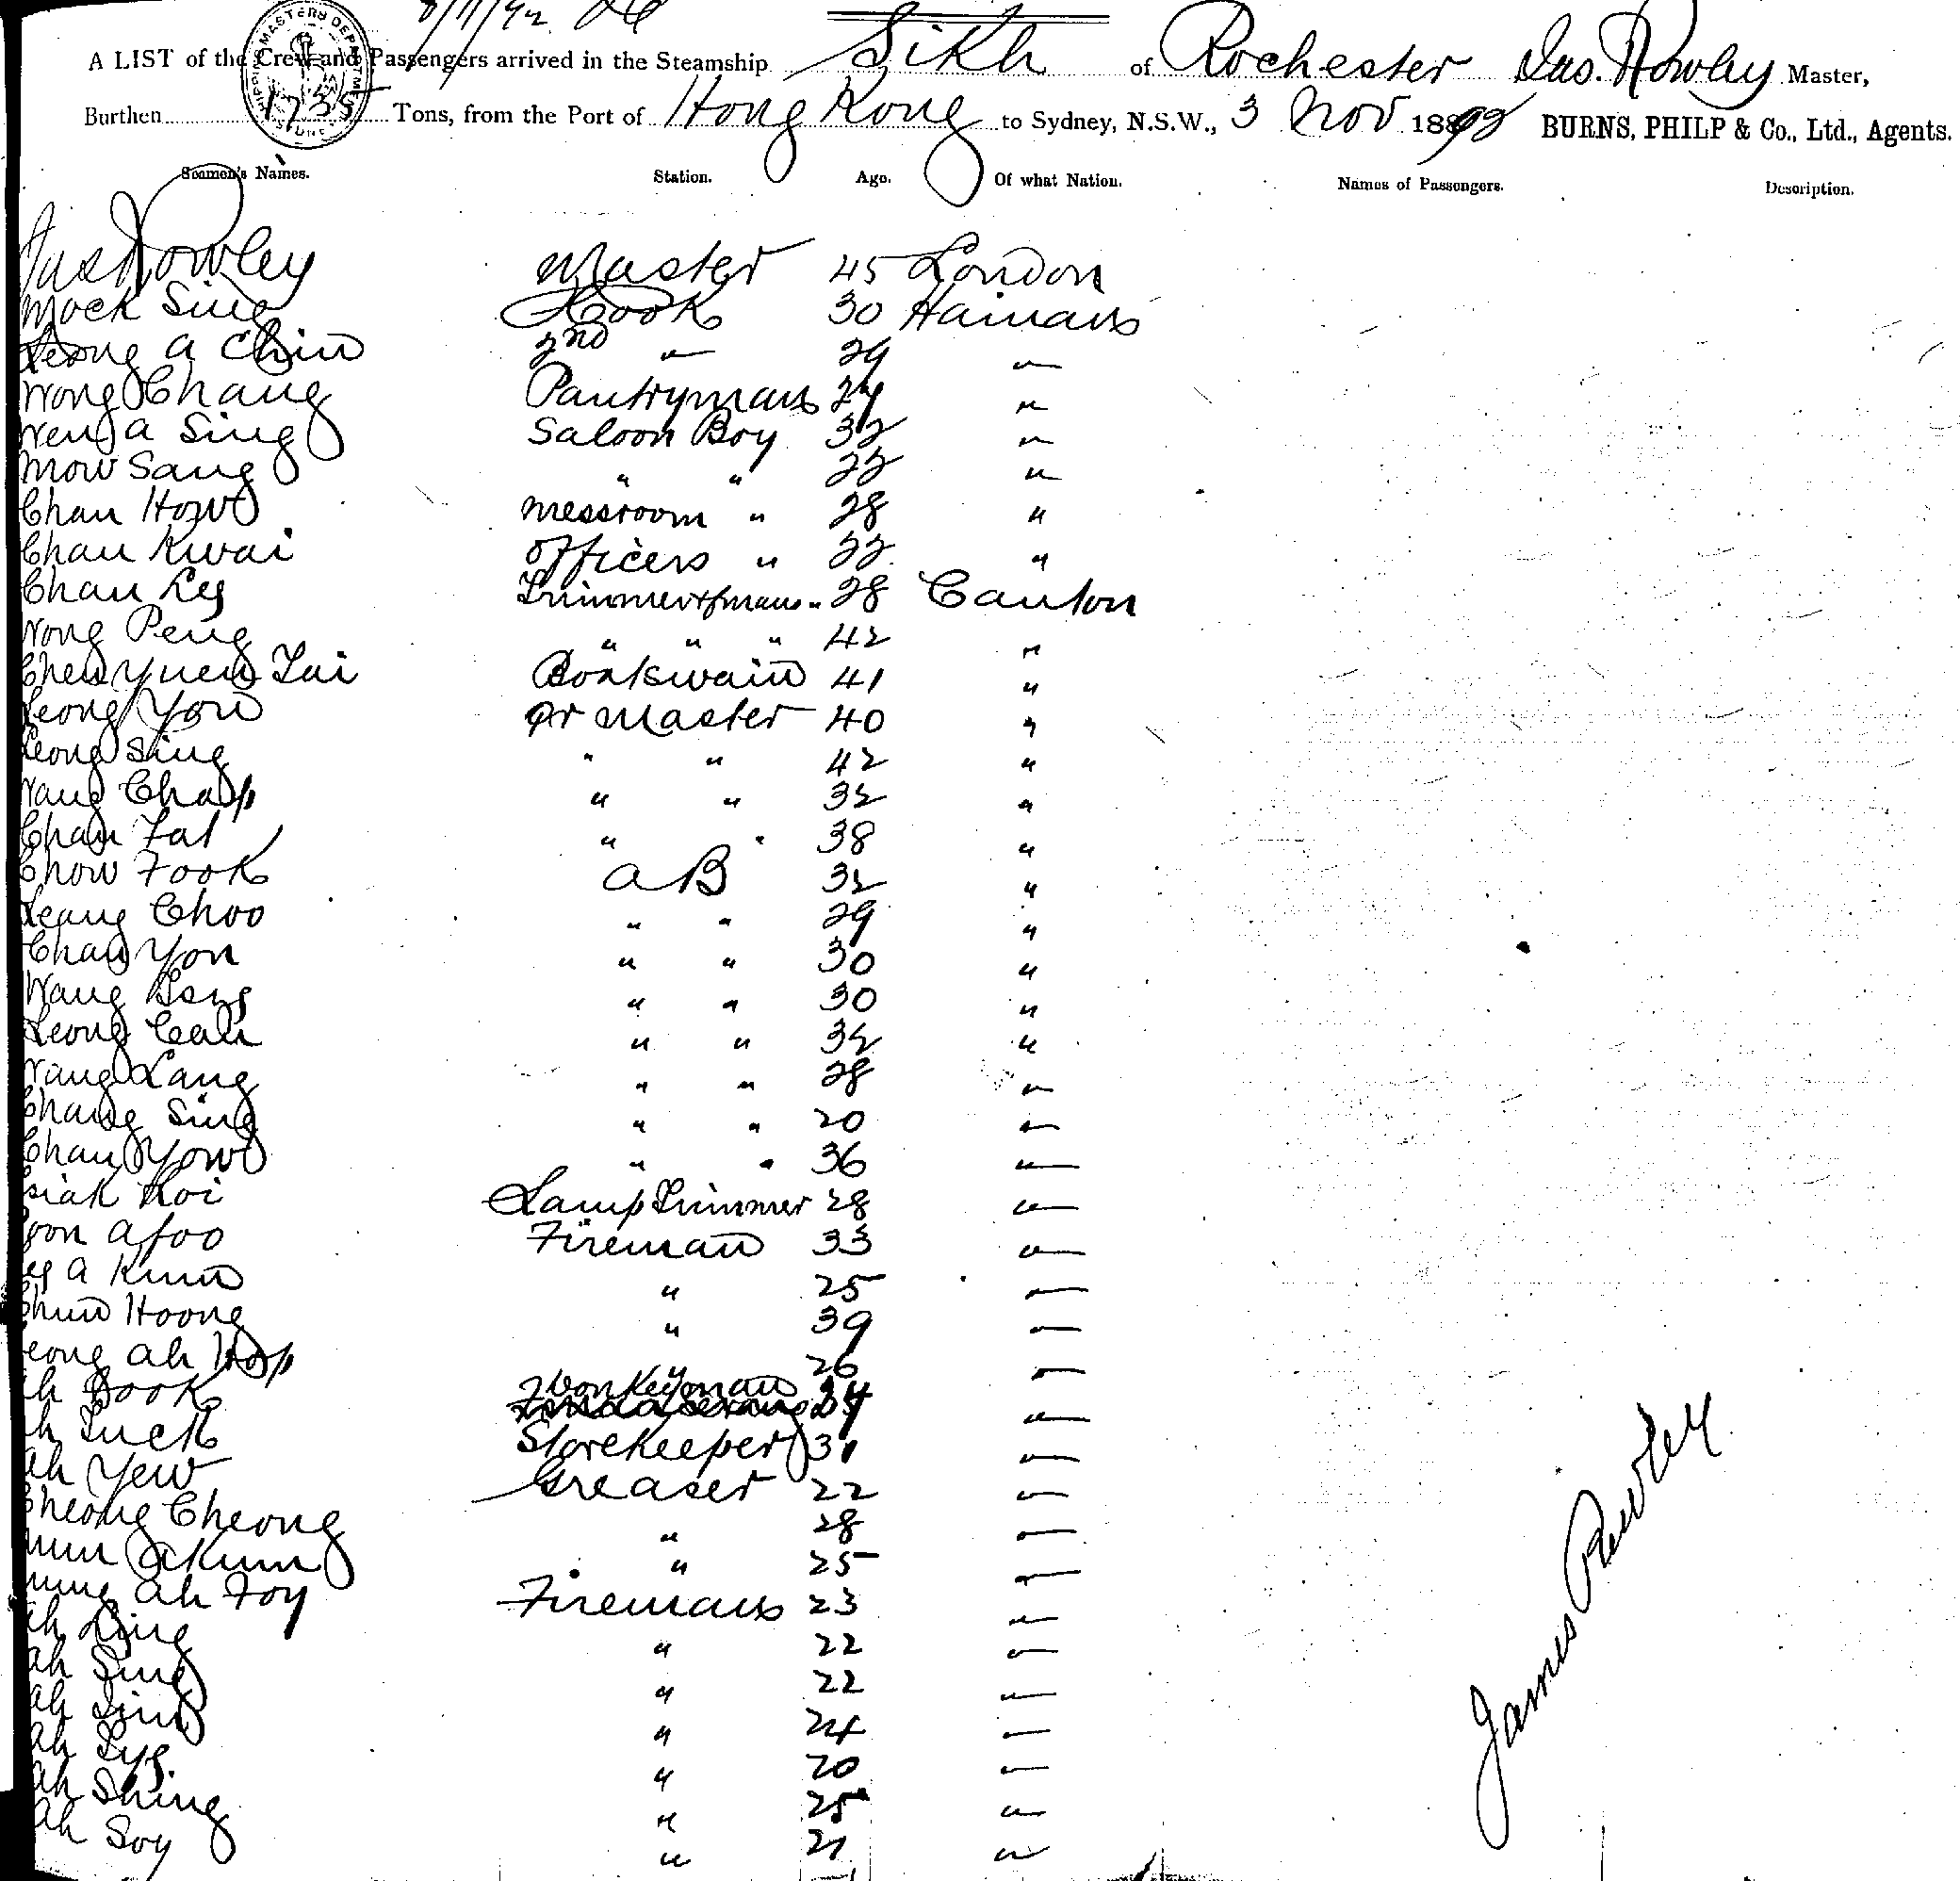 8/11/92
A LIST of the Crew and Passengers arrived in the Steamship Sikh of Rochester Jas. Rowley Master,
Burthen 1735 Tons, from the Port of Hong Kong to Sydney, N.S.W., 3 Nov 1892 BURNS, PHILP & Co., Ltd., Agents.
SHIPPING MASTERS DEPARTMENT
Seamen's Names. Station. Age. Of what Nation. Names of Passengers. Description.
Jas Rowley Master 45 London
Mock Sing Cook 30 Hainan
Leong a Chin 2nd " 29 "
Wong Chang Pantryman 24 "
a Sing Saloon Boy 32 "
Mow Sang " " 22 "
Chan How messroom " 28 "
Chan Kwai Officers " 22 "
Chan Ley 28 Canton
Wong Peng " " " 42 "
Chew Yuen Tai Boatswain 41 "
Leong You Qr Master 40 "
Leong Sing " " 42 "
Wang Chap " " 32 "
Chan Fat " " 38 "
Chow Fook A B 32 "
Leang Choo " " 29 "
Chan Yon " " 30 "
Wang " " 30 "
Leong Can " " 32 "
Wang Lang " " 28 "
Chang Sing " " 20 "
Chan Yow " " 36 "
Koi Lamp Trimmer 28 "
afoo Fireman 33 "
a Kum " 25 "
Chun Hoong " 39 "
Leong ah Hop " 26 "
Ah Donkeyman 34 "
Ah Luck Storekeeper 31 "
Ah Yew Greaser 22 "
Cheong Cheong " 28 "
aKum " 25 "
ah Foy Fireman 23 "
Ah Ling " 22 "
Ah Sing " 22 "
Ah " 24 "
Ah " 20 "
Ah Shing " 25 "
Ah Soy " 21 "
James Rowley